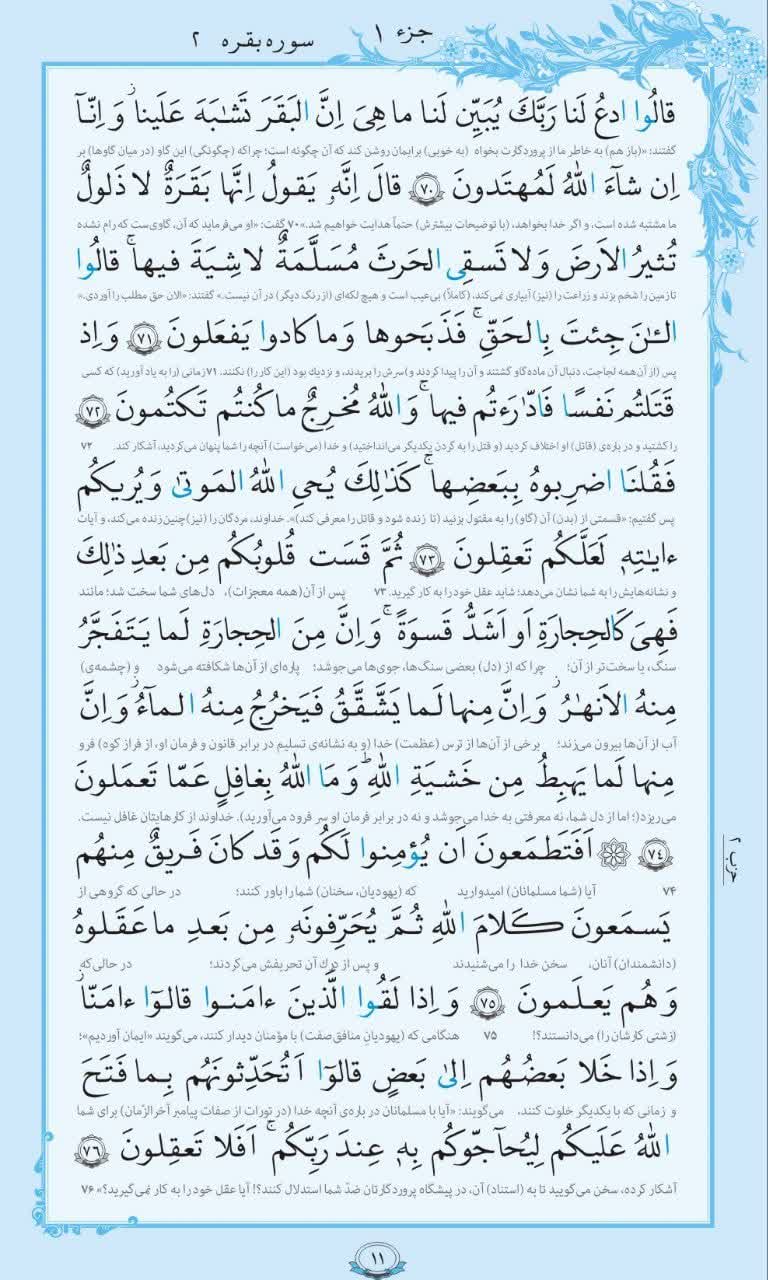 جزء ۱
سوره بقره ۲
قالُوا ادعُ لَنا رَبَّكَ يُبَيِّن لَنا ما هِىَ اِنَّ البَقَرَ تَشٰبَهَ عَلَينا وَ اِنّآ
گفتند: «(باز هم) به خاطر ما از پروردگارت بخواه (به خوبی) برایمان روشن کند که آن چگونه است؛ چراکه (چگونگی) این گاو (در میان گاوها) بر
اِن شآءَ اللهُ لَمُهتَدونَ ﴿۷۰﴾ قالَ اِنَّهٗ يَقولُ اِنَّها بَقَرَةٌ لا ذَلولٌ
ما مشتبه شده است، و اگر خدا بخواهد، (با توضیحات بیشترش) حتماً هدایت خواهیم شد.» ۷۰ گفت: «او می‌فرماید که آن، گاوی‌ست که رام نشده
تُثيرُ الاَرضَ وَ لا تَسقِى الحَرثَ مُسَلَّمَةٌ لا شِيَةَ فيها ۚ قالُوا
تا زمین را شخم بزند و زراعت را (نیز) آبیاری نمی‌کند، (کاملاً) بی‌عیب است و هیچ لکه‌ای (از رنگ دیگر) در آن نیست.» گفتند: «الان حق مطلب را آوردی.»
الـٰٔنَ جِئتَ بِالحَقِّ ۚ فَذَبَحوها وَ ما كادوا يَفعَلونَ ﴿۷۱﴾ وَ اِذ
پس (از آن همه لجاجت، دنبال آن ماده‌گاو گشتند و آن را پیدا کردند و) سرش را بریدند، و نزدیک بود (این کار را) نکنند. ۷۱ زمانی (را به یاد آورید) که کسی
قَتَلتُم نَفسًا فَادّٰرَءتُم فيها ۚ وَ اللهُ مُخرِجٌ ما كُنتُم تَكتُمونَ ﴿۷۲﴾
را کشتید و در باره‌ی (قاتل) او اختلاف کردید (و قتل را به گردن یکدیگر می‌انداختید) و خدا (می‌خواست) آنچه را شما پنهان می‌کردید، آشکار کند. ۷۲
فَقُلنَا اضرِبوهُ بِبَعضِها ۚ كَذٰلِكَ يُحىِ اللهُ المَوتىٰ وَ يُريكُم
پس گفتیم: «قسمتی از (بدن) آن (گاو) را به مقتول بزنید (تا زنده شود و قاتل را معرفی کند)». خداوند، مردگان را (نیز) چنین زنده می‌کند، و آیات
ءايٰتِهٖ لَعَلَّكُم تَعقِلونَ ﴿۷۳﴾ ثُمَّ قَسَت قُلوبُكُم مِن بَعدِ ذٰلِكَ
و نشانه‌هایش را به شما نشان می‌دهد؛ شاید عقل خود را به کار گیرید. ۷۳ پس از آن (همه معجزات)، دل‌های شما سخت شد؛ مانند
فَهِىَ كَالحِجارَةِ اَو اَشَدُّ قَسوَةً ۚ وَ اِنَّ مِنَ الحِجارَةِ لَما يَتَفَجَّرُ
سنگ، یا سخت‌تر از آن؛ چرا که از (دل) بعضی سنگ‌ها، جوی‌ها می‌جوشد؛ پاره‌ای از آن‌ها شکافته می‌شود و (چشمه‌ی)
مِنهُ الاَنهٰرُ ۚ وَ اِنَّ مِنها لَما يَشَّقَّقُ فَيَخرُجُ مِنهُ المآءُ ۚ وَ اِنَّ
آب از آن‌ها بیرون می‌زند؛ برخی از آن‌ها از ترس (عظمت) خدا (و به نشانه‌ی تسلیم در برابر قانون و فرمان او، از فراز کوه) فرو
مِنها لَما يَهبِطُ مِن خَشيَةِ اللهِ ؕ وَ مَا اللهُ بِغافِلٍ عَمّا تَعمَلونَ
می‌ریزد(؛ اما از دل شما، نه معرفتی به خدا می‌جوشد و نه در برابر فرمان او سر فرود می‌آورید). خداوند از کارهایتان غافل نیست.
﴿۷۴﴾ ۞ اَفَتَطمَعونَ اَن يُؤمِنوا لَكُم وَ قَد كانَ فَريقٌ مِنهُم
۷۴ آیا (شما مسلمانان) امیدوارید که (یهودیان، سخنان) شما را باور کنند؛ در حالی که گروهی از
حزب ۲
يَسمَعونَ كَلامَ اللهِ ثُمَّ يُحَرِّفونَهٗ مِن بَعدِ ما عَقَلوهُ
(دانشمندان) آنان، سخن خدا را می‌شنیدند و پس از درك آن تحریفش می‌کردند؛ در حالی‌که
وَ هُم يَعلَمونَ ﴿۷۵﴾ وَ اِذا لَقُوا الَّذينَ ءامَنوا قالوٓا ءامَنّا
(زشتی کارشان را) می‌دانستند؟! ۷۵ هنگامی که (یهودیانِ منافق‌صفت) با مؤمنان دیدار کنند، می‌گویند «ایمان آوردیم»؛
وَ اِذا خَلا بَعضُهُم اِلىٰ بَعضٍ قالوٓا اَتُحَدِّثونَهُم بِما فَتَحَ
و زمانی که با یکدیگر خلوت کنند، می‌گویند: «آیا با مسلمانان در باره‌ی آنچه خدا (در تورات از صفات پیامبر آخرالزّمان) برای شما
اللهُ عَلَيكُم لِيُحآجّوكُم بِهٖ عِندَ رَبِّكُم ۚ اَفَلا تَعقِلونَ ﴿۷۶﴾
آشکار کرده، سخن می‌گویید تا به (استناد) آن، در پیشگاه پروردگارتان ضدّ شما استدلال کنند؟! آیا عقل خود را به کار نمی‌گیرید؟» ۷۶
۱۱